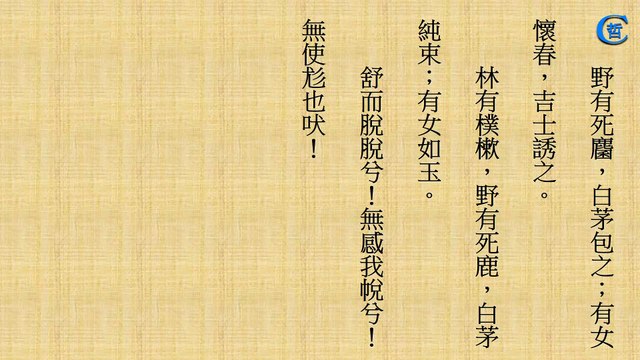 哲
野有死麕，白茅包之；有女
懷春，吉士誘之。
林有樸樕，野有死鹿，白茅
純束；有女如玉。
舒而脫脫兮！無感我帨兮！
無使尨也吠！